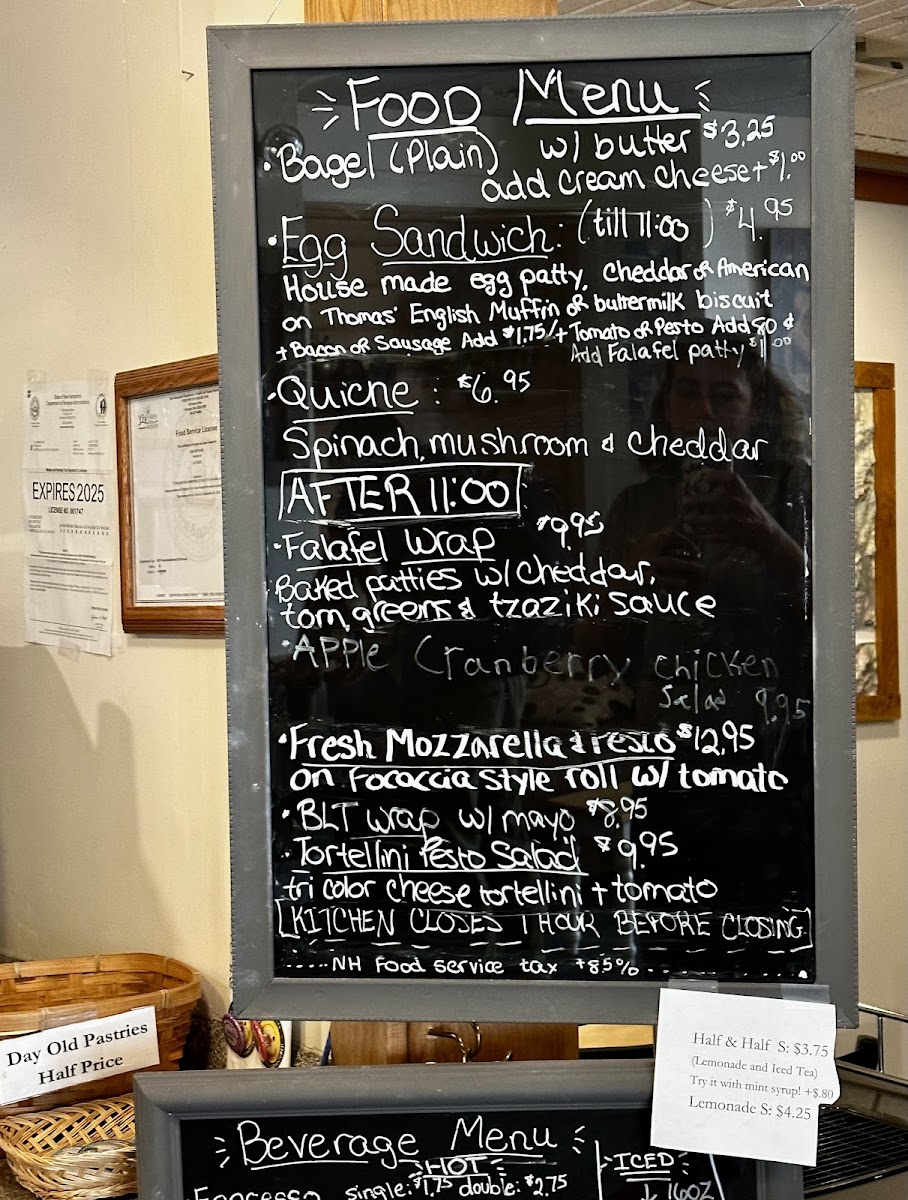 Food Menu
• Bagel (Plain) w/ butter $3.25
add cream cheese + $1.00
• Egg Sandwich: (till 11:00) $4.95
House made egg patty, cheddar or American
on Thomas' English Muffin or buttermilk biscuit
+ Bacon or Sausage Add $1.75/+ Tomato or Pesto Add 80¢
Add Falafel patty $1.00
• Quiche: $6.95
Spinach, mushroom & cheddar
AFTER 11:00
• Falafel wrap $9.95
Baked patties w/ cheddar,
tom, greens & tzaziki sauce
• Apple Cranberry chicken
Salad 9.95
• Fresh Mozzarella & Pesto $12.95
on Fococcia style roll w/ tomato
• BLT wrap w/ mayo $8.95
• Tortellini Pesto Salad $9.95
tri color cheese tortellini + tomato
[KITCHEN CLOSES 1 HOUR BEFORE CLOSING]
.....NH Food service tax +8.5%....
EXPIRES 2025
LICENSE NO. 061747
Food Service License
Day Old Pastries
Half Price
Half & Half S: $3.75
(Lemonade and Iced Tea)
Try it with mint syrup! +$.80
Lemonade S: $4.25
Beverage Menu
HOT
ICED
Espresso single: $1.75 double: $2.75
↓ 16oz